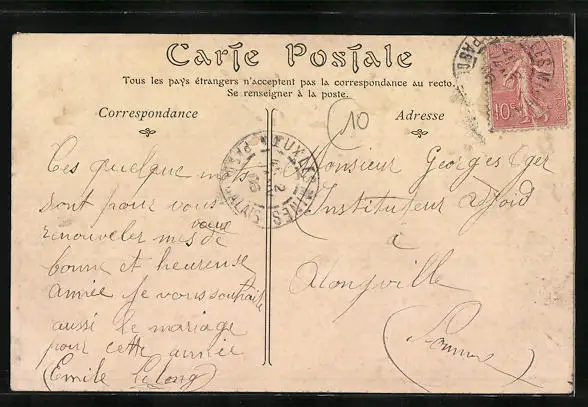 Carte Postale
Tous les pays étrangers n'acceptent pas la correspondance au recto.
Se renseigner à la poste.
Correspondance
Adresse
10
10c
Ces quelque mots
sont pour vous
renouveler mes vœux de
bonne et heureuse
année je vous souhaite
aussi le mariage
pour cette année
(Emile Lelong)
Monsieur Georges Oger
Instituteur adjoid
à
Alongville
(Somme)